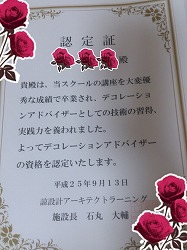 認定証
殿
貴殿は、当スクールの講座を大変優
秀な成績で卒業され、デコレーショ
ンアドバイザーとしての技術の習得、
実践力を養われました。
よってデコレーションアドバイザー
の資格を認定いたします。
平成25年9月13日
諒設計アーキテクトラーニング
施設長 石丸 大輔